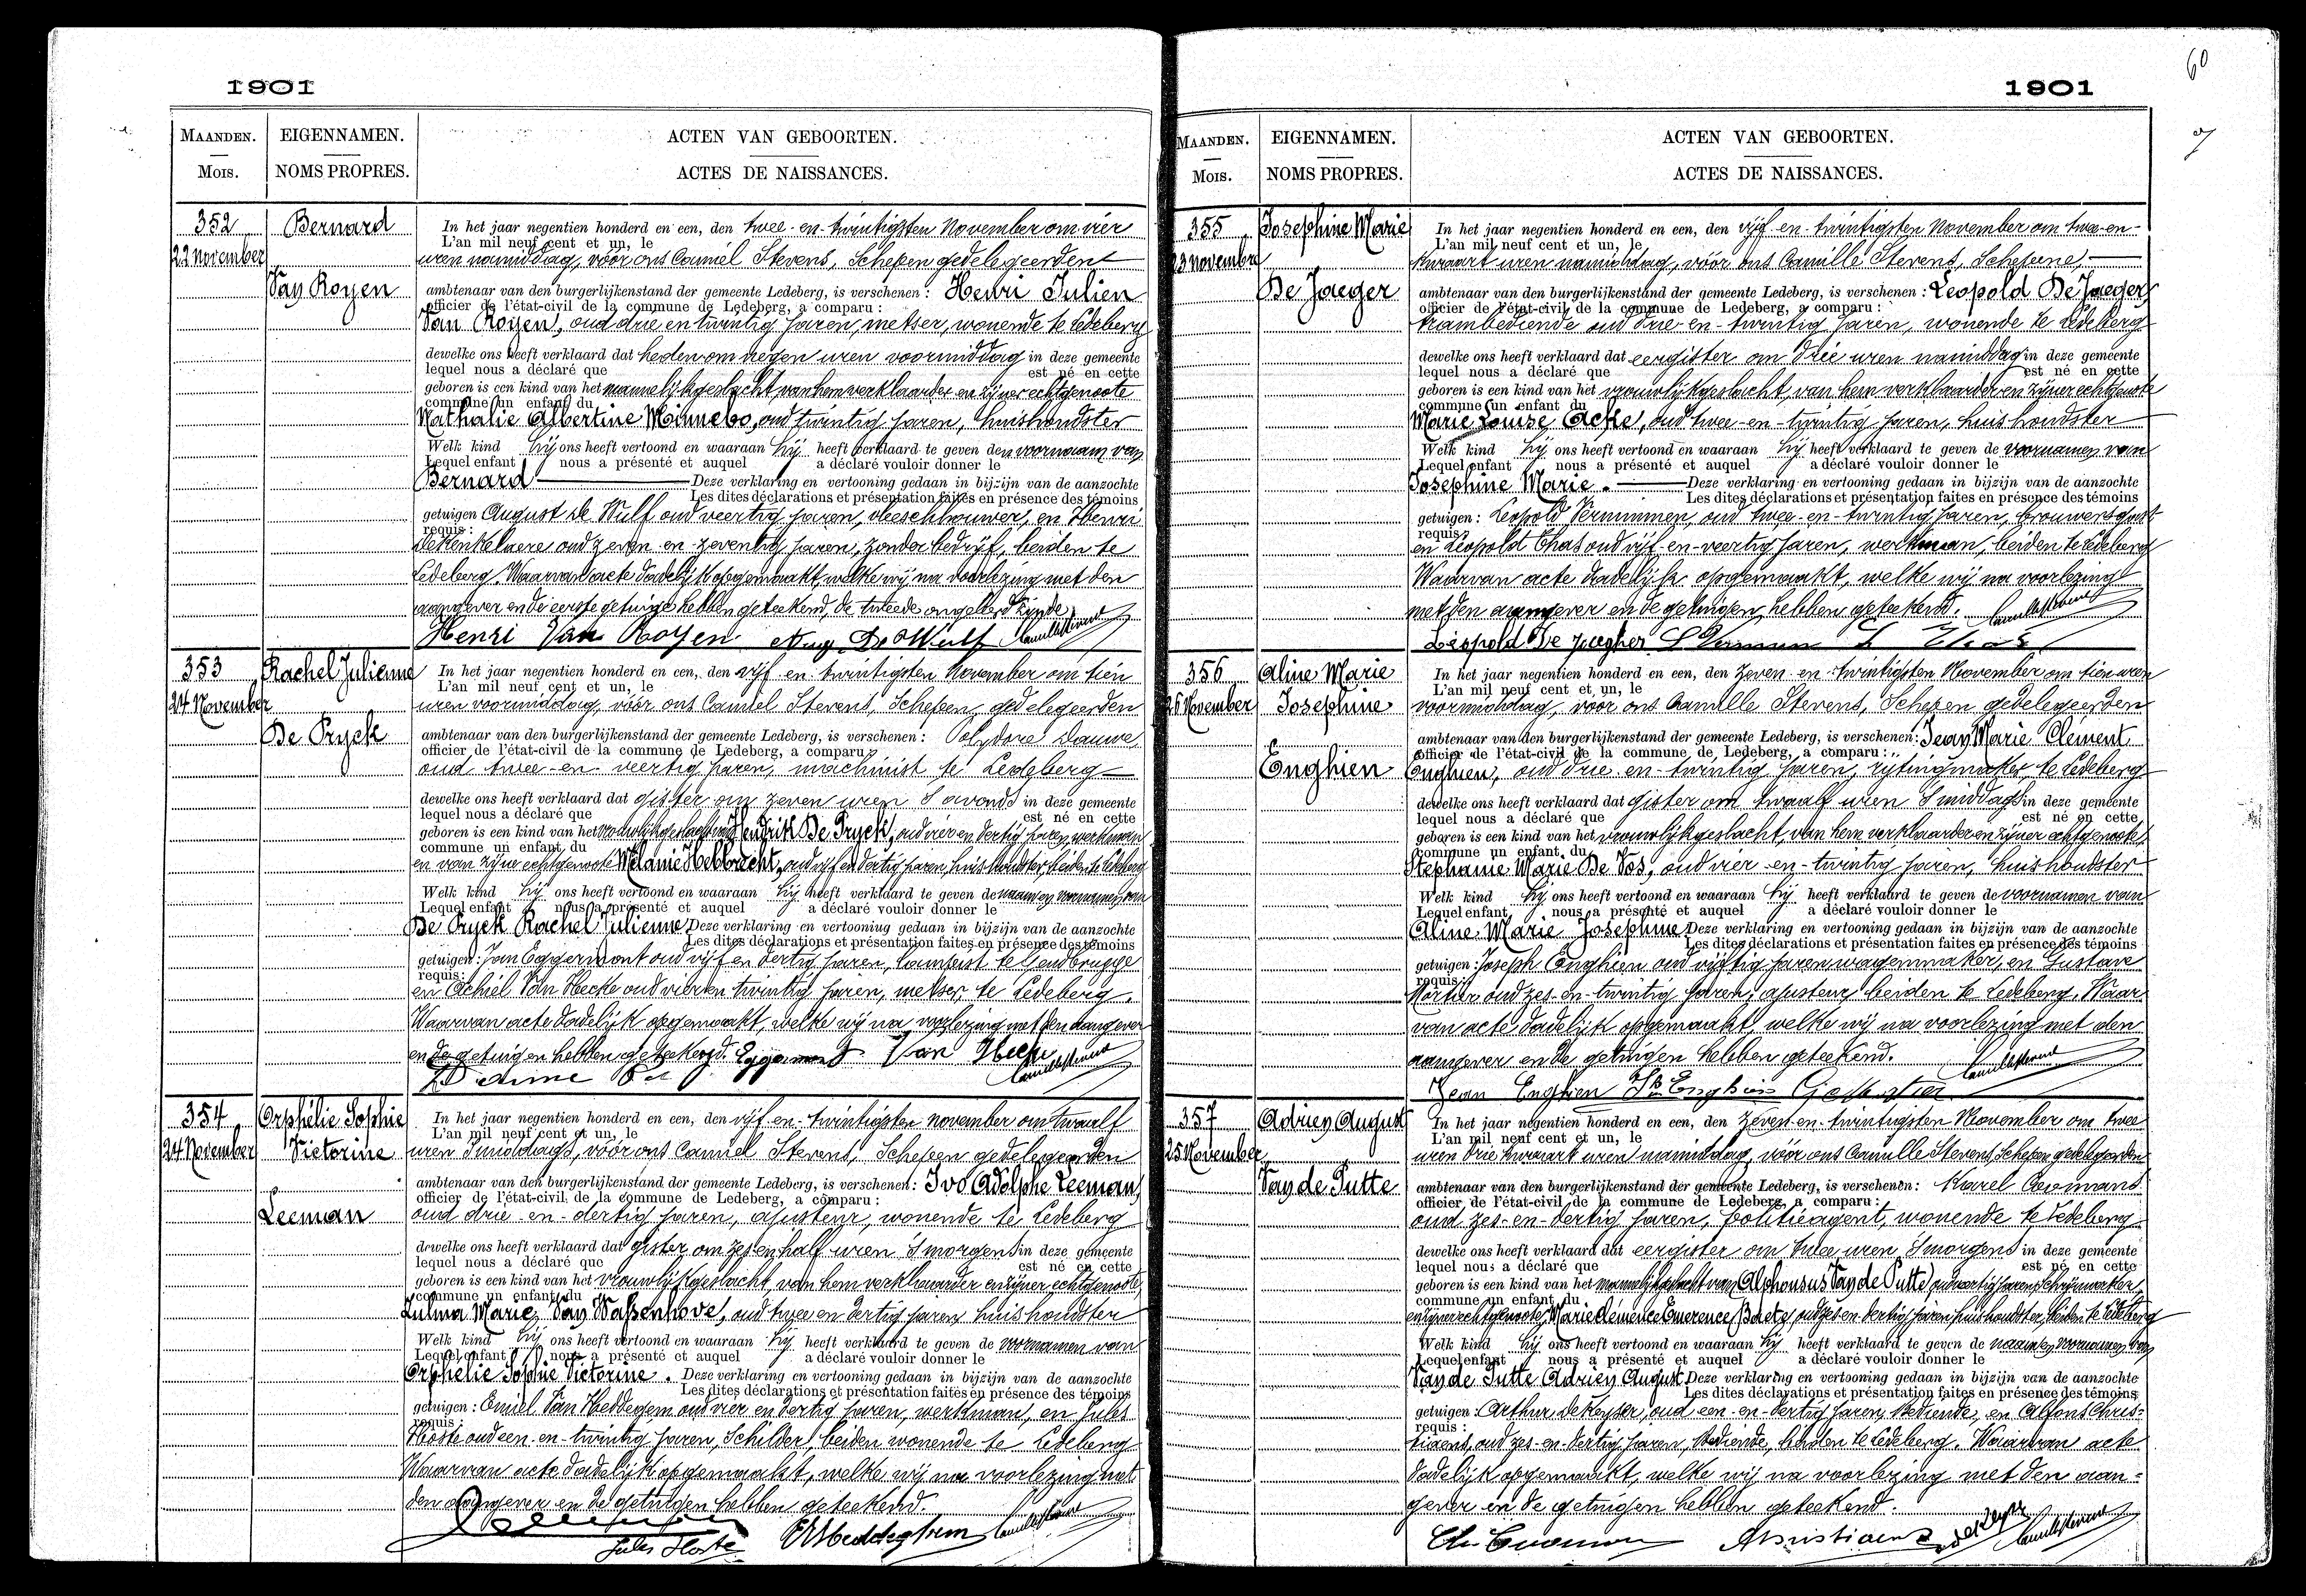 1901
MAANDEN.
Mois.
EIGENNAMEN.
NOMS PROPRES.
ACTEN VAN GEBOORTEN.
ACTES DE NAISSANCES.
352
22 November
Bernard
Van Royen
In het jaar negentien honderd en een, den twee-en-twintigsten November om vier
L'an mil neuf cent et un, le
uren namiddag, vóór ons Camiel Stevens, Schepen gedelegeerden
ambtenaar van den burgerlijkenstand der gemeente Ledeberg, is verschenen: Henri Julien
officier de l'état-civil de la commune de Ledeberg, a comparu:
Van Royen, oud drie en twintig jaren, metser, wonende te Ledeberg
dewelke ons heeft verklaard dat heden om negen uren voormiddag in deze gemeente
lequel nous a déclaré que est né en cette
geboren is een kind van het mannelijk geslacht, van hem verklaarder en zijner echtgenoote
commune un enfant du
Nathalie Albertine Minnebo, oud twintig jaren, huishoudster
Welk kind hij ons heeft vertoond en waaraan hij heeft verklaard te geven den voornaam van
Lequel enfant nous a présenté et auquel a déclaré vouloir donner le
Bernard Deze verklaring en vertooning gedaan in bijzijn van de aanzochte
Les dites déclarations et présentation faites en présence des témoins
getuigen August De Wulf oud veertig jaren, vleeschhouwer, en Henri
requis:
Dekenkelaere oud zeven-en-zeventig jaren, zonder bedrijf, beiden te
Ledeberg. Waarvan acte dadelijk opgemaakt, welke wij na voorlezing met den
aangever en de eerste getuige hebben geteekend, de tweede ongeleerd zijnde.
Henri Van Royen Aug. De Wulf Camille Stevens
353
24 November
Rachel Julienne
De Pryck
In het jaar negentien honderd en een, den vijf-en-twintigsten November om tien
L'an mil neuf cent et un, le
uren voormiddag, vóór ons Camiel Stevens, Schepen gedelegeerden
ambtenaar van den burgerlijkenstand der gemeente Ledeberg, is verschenen: Polydore Dauwe
officier de l'état-civil de la commune de Ledeberg, a comparu:
oud twee-en-veertig jaren, machinist te Ledeberg
dewelke ons heeft verklaard dat gister om zeven uren 's avonds in deze gemeente
lequel nous a déclaré que est né en cette
geboren is een kind van het vrouwelijk geslacht van Hendrik De Pryck, oud vier en dertig jaren, werkman
commune un enfant du
en van zijne echtgenoote Melanie Hebbrecht, oud vijf en dertig jaren, huishoudster, beiden te Ledeberg
Welk kind hij ons heeft vertoond en waaraan hij heeft verklaard te geven de naam en voornamen van
Lequel enfant nous a présenté et auquel a déclaré vouloir donner le
De Pryck Rachel Julienne Deze verklaring en vertooning gedaan in bijzijn van de aanzochte
Les dites déclarations et présentation faites en présence des témoins
getuigen: Jan Eggermont oud vijf en dertig jaren, te Gendbrugge
requis:
en Achiel Van Hecke oud vier en twintig jaren, metser, te Ledeberg.
Waarvan acte dadelijk opgemaakt, welke wij na voorlezing met den aangever
en de getuigen hebben geteekend. Eggermont Van Hecke
Camille Stevens
354
24 November
Orphélie Sophie
Victorine
Leeman
In het jaar negentien honderd en een, den vijf-en-twintigsten november om twaalf
L'an mil neuf cent et un, le
uren 's middags, vóór ons Camiel Stevens, Schepen gedelegeerden
ambtenaar van den burgerlijkenstand der gemeente Ledeberg, is verschenen: Ivo Adolphe Leeman,
officier de l'état-civil de la commune de Ledeberg, a comparu:
oud drie-en-dertig jaren, ajusteur, wonende te Ledeberg
dewelke ons heeft verklaard dat gister om zes en half uren 's morgens in deze gemeente
lequel nous a déclaré que est né en cette
geboren is een kind van het vrouwlijk geslacht, van hem verklaarder en zijner echtgenoote,
commune un enfant du
Zulma Marie Van Wassenhove, oud twee en dertig jaren huishoudster
Welk kind hij ons heeft vertoond en waaraan hij heeft verklaard te geven de voornamen van
Lequel enfant nous a présenté et auquel a déclaré vouloir donner le
Orphélie Sophie Victorine. Deze verklaring en vertooning gedaan in bijzijn van de aanzochte
Les dites déclarations et présentation faites en présence des témoins
getuigen: Emiel Van Heddegem oud vier en dertig jaren, werkman, en Jules
requis:
Hoste oud een-en-twintig jaren, Schilder, beiden wonende te Ledeberg
Waarvan acte dadelijk opgemaakt, welke wij na voorlezing met
den aangever en de getuigen hebben geteekend.
Leeman Jules Hoste Camille Stevens
60
1901
MAANDEN.
Mois.
EIGENNAMEN.
NOMS PROPRES.
ACTEN VAN GEBOORTEN.
ACTES DE NAISSANCES.
355
23 november
Josephine Marie
De Jaeger
In het jaar negentien honderd en een, den vijf-en-twintigsten November om twee-en-
L'an mil neuf cent et un, le
kwaart uren namiddag, vóór ons Camille Stevens, Schepene,
ambtenaar van den burgerlijkenstand der gemeente Ledeberg, is verschenen: Leopold De Jaeger,
officier de l'état-civil de la commune de Ledeberg, a comparu:
trambediende oud drie-en-twintig jaren, wonende te Ledeberg
dewelke ons heeft verklaard dat eergister om drie uren namiddag in deze gemeente
lequel nous a déclaré que est né en cette
geboren is een kind van het vrouwlijk geslacht, van hem verklaarder en zijner echtgenoote
commune un enfant du
Marie Louise Acke, oud twee-en-twintig jaren, huishoudster
Welk kind hij ons heeft vertoond en waaraan hij heeft verklaard te geven de voornamen van
Lequel enfant nous a présenté et auquel a déclaré vouloir donner le
Josephine Marie. Deze verklaring en vertooning gedaan in bijzijn van de aanzochte
Les dites déclarations et présentation faites en présence des témoins
getuigen: Leopold Vernimmen, oud twee-en-twintig jaren, brouwersgast
requis:
en Leopold Thas oud vijf-en-veertig jaren, werkman, beiden te Ledeberg
Waarvan acte dadelijk opgemaakt, welke wij na voorlezing
met den aangever en de getuigen hebben geteekend. Camille Stevens
Léopold De Jaegher
356
26 November
Aline Marie
Josephine
Enghien
In het jaar negentien honderd en een, den zeven-en-twintigsten November om tien uren
L'an mil neuf cent et un, le
voormiddag, voor ons Camille Stevens, Schepen gedelegeerden
ambtenaar van den burgerlijkenstand der gemeente Ledeberg, is verschenen: Jean Marie Clément
officier de l'état-civil de la commune de Ledeberg, a comparu:
Enghien, oud drie-en-twintig jaren, rijtuigmaker, te Ledeberg
dewelke ons heeft verklaard dat gister om twaalf uren 's middags in deze gemeente
lequel nous a déclaré que est né en cette
geboren is een kind van het vrouwlijk geslacht, van hem verklaarder en zijner echtgenoote,
commune un enfant du
Stephanie Marie De Vos, oud vier-en-twintig jaren, huishoudster
Welk kind hij ons heeft vertoond en waaraan hij heeft verklaard te geven de voornamen van
Lequel enfant nous a présenté et auquel a déclaré vouloir donner le
Aline Marie Josephine Deze verklaring en vertooning gedaan in bijzijn van de aanzochte
Les dites déclarations et présentation faites en présence des témoins
getuigen: Joseph Enghien oud vijftig jaren wagenmaker, en Gustave
requis:
oud zes-en-twintig jaren, ajusteur, beiden te Ledeberg. Waar
van acte dadelijk opgemaakt, welke wij na voorlezing met den
aangever en de getuigen hebben geteekend. Camille Stevens
Jean Enghien
357
25 November
Adrien August
Van de Putte
In het jaar negentien honderd en een, den zeven-en-twintigsten November om twee
L'an mil neuf cent et un, le
uren drie kwaart uren namiddag, vóór ons Camille Stevens, Schepen gedelegeerden
ambtenaar van den burgerlijkenstand der gemeente Ledeberg, is verschenen: Karel Coomans
officier de l'état-civil de la commune de Ledeberg, a comparu:
oud zes-en-dertig jaren, politieagent, wonende te Ledeberg
dewelke ons heeft verklaard dat eergister om twee uren 's morgens in deze gemeente
lequel nous a déclaré que est né en cette
geboren is een kind van het mannelijk geslacht van Alphonsus Van de Putte, oud veertig jaren, schrijnwerker,
commune un enfant du
en zijner echtgenoote, Marie Clémence Emerence Baete, oud zes en dertig jaren huishoudster, beiden te Ledeberg
Welk kind hij ons heeft vertoond en waaraan hij heeft verklaard te geven de naam en voornamen van
Lequel enfant nous a présenté et auquel a déclaré vouloir donner le
Van de Putte Adrien August Deze verklaring en vertooning gedaan in bijzijn van de aanzochte
Les dites déclarations et présentation faites en présence des témoins
getuigen: Arthur De Keyser, oud een-en-dertig jaren, Bediende, en Alfons Chris-
requis:
tiaens, oud zes-en-dertig jaren, Bediende, beiden te Ledeberg. Waarvan acte
dadelijk opgemaakt, welke wij na voorlezing met den aan-
gever en de getuigen hebben geteekend.
Ch. Coomans Christiaens De Keyser Camille Stevens